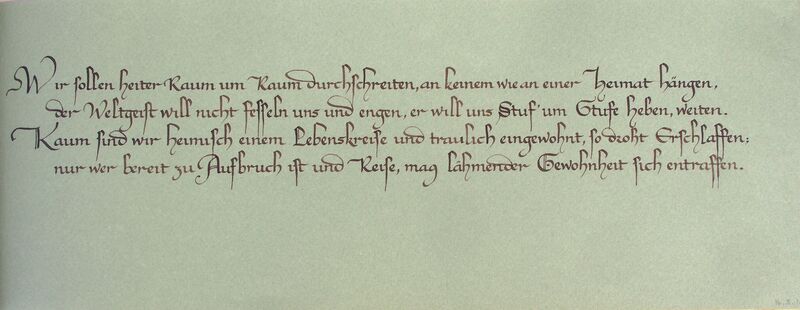 Wir sollen heiter Raum um Raum durchschreiten, an keinem wie an einer Heimat hängen,
der Weltgeist will nicht fesseln uns und engen, er will uns Stuf' um Stufe heben, weiten.
Kaum sind wir heimisch einem Lebenskreise und traulich eingewohnt, so droht Erschlaffen;
nur wer bereit zu Aufbruch ist und Reise, mag lähmender Gewohnheit sich entraffen.